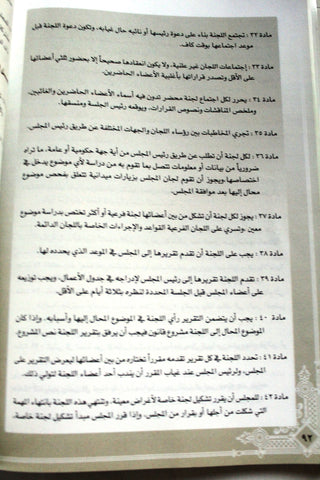 مادة ٣٢ : تجتمع اللجنة بناء على دعوة رئيسها أو نائبه حال غيابه، وتكون دعوة اللجنة قبل
موعد اجتماعها بوقت كاف.
مادة ٣٣ : إجتماعات اللجان غير علنية، ولا يكون انعقادها صحيحاً إلا بحضور ثلثي أعضائها
على الأقل وتصدر قراراتها بأغلبية الأعضاء الحاضرين.
مادة ٣٤ : يحرر لكل اجتماع لجنة محضر تدون فيه أسماء الأعضاء الحاضرين والغائبين،
وملخص المناقشات ونصوص القرارات، ويوقعه رئيس اللجنة ومنسقها.
مادة ٣٥ : تجري المخاطبات بين رؤساء اللجان والجهات المختلفة عن طريق رئيس المجلس.
مادة ٣٦ : لكل لجنة أن تطلب عن طريق رئيس المجلس من أية جهة حكومية أو عامة، ما تراه
ضرورياً من بيانات أو معلومات تتصل بما تقوم به من دراسة لأي موضوع يدخل في
اختصاصها ويجوز أن تقوم لجان المجلس بزيارات ميدانية تتعلق بفحص موضوع
محال إليها بعد موافقة المجلس.
مادة ٣٧ : يجوز لكل لجنة أن تشكل من بين أعضائها لجنة فرعية أو أكثر تختص بدراسة موضوع
معين، وتسري على اللجان الفرعية القواعد والإجراءات الخاصة باللجان الدائمة.
مادة ٣٨ : يجب على اللجنة أن تقدم تقريرها إلى المجلس في الموعد الذي يحدده لها.
مادة ٣٩ : تقدم اللجنة تقريرها إلى رئيس المجلس لإدراجه في جدول الأعمال، ويجب توزيعه
على أعضاء المجلس قبل الجلسة المحددة لنظره بثلاثة أيام على الأقل.
مادة ٤٠ : يجب أن يتضمن التقرير رأي اللجنة في الموضوع المحال إليها وأسبابه. وإذا كان
الموضوع المحال إلى اللجنة مشروع قانون فيجب أن يرفق بتقرير اللجنة نص المشروع.
مادة ٤١ : تحدد اللجنة في كل تقرير تقدمه مقرراً تختاره من بين أعضائها ليعرض التقرير على
المجلس، ولرئيس المجلس عند غياب المقرر أن يندب أحد أعضاء اللجنة لتولي ذلك.
مادة ٤٢ : للمجلس أن يقرر تشكيل لجنة خاصة لأغراض معينة، وتنتهي هذه اللجنة بانتهاء المهمة
التي شكلت من أجلها أو بقرار من المجلس، وإذا قرر المجلس مبدأ تشكيل لجنة خاصة.
٩٢